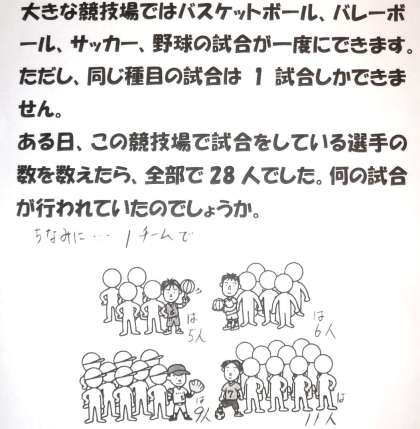 大きな競技場ではバスケットボール、バレーボ
ール、サッカー、野球の試合が一度にできます。
ただし、同じ種目の試合は 1 試合しかできま
せん。
ある日、この競技場で試合をしている選手の
数を数えたら、全部で 28 人でした。何の試合
が行われていたのでしょうか。
ちなみに… 1チームで
は
5人
は
6人
は
9人
は
11人